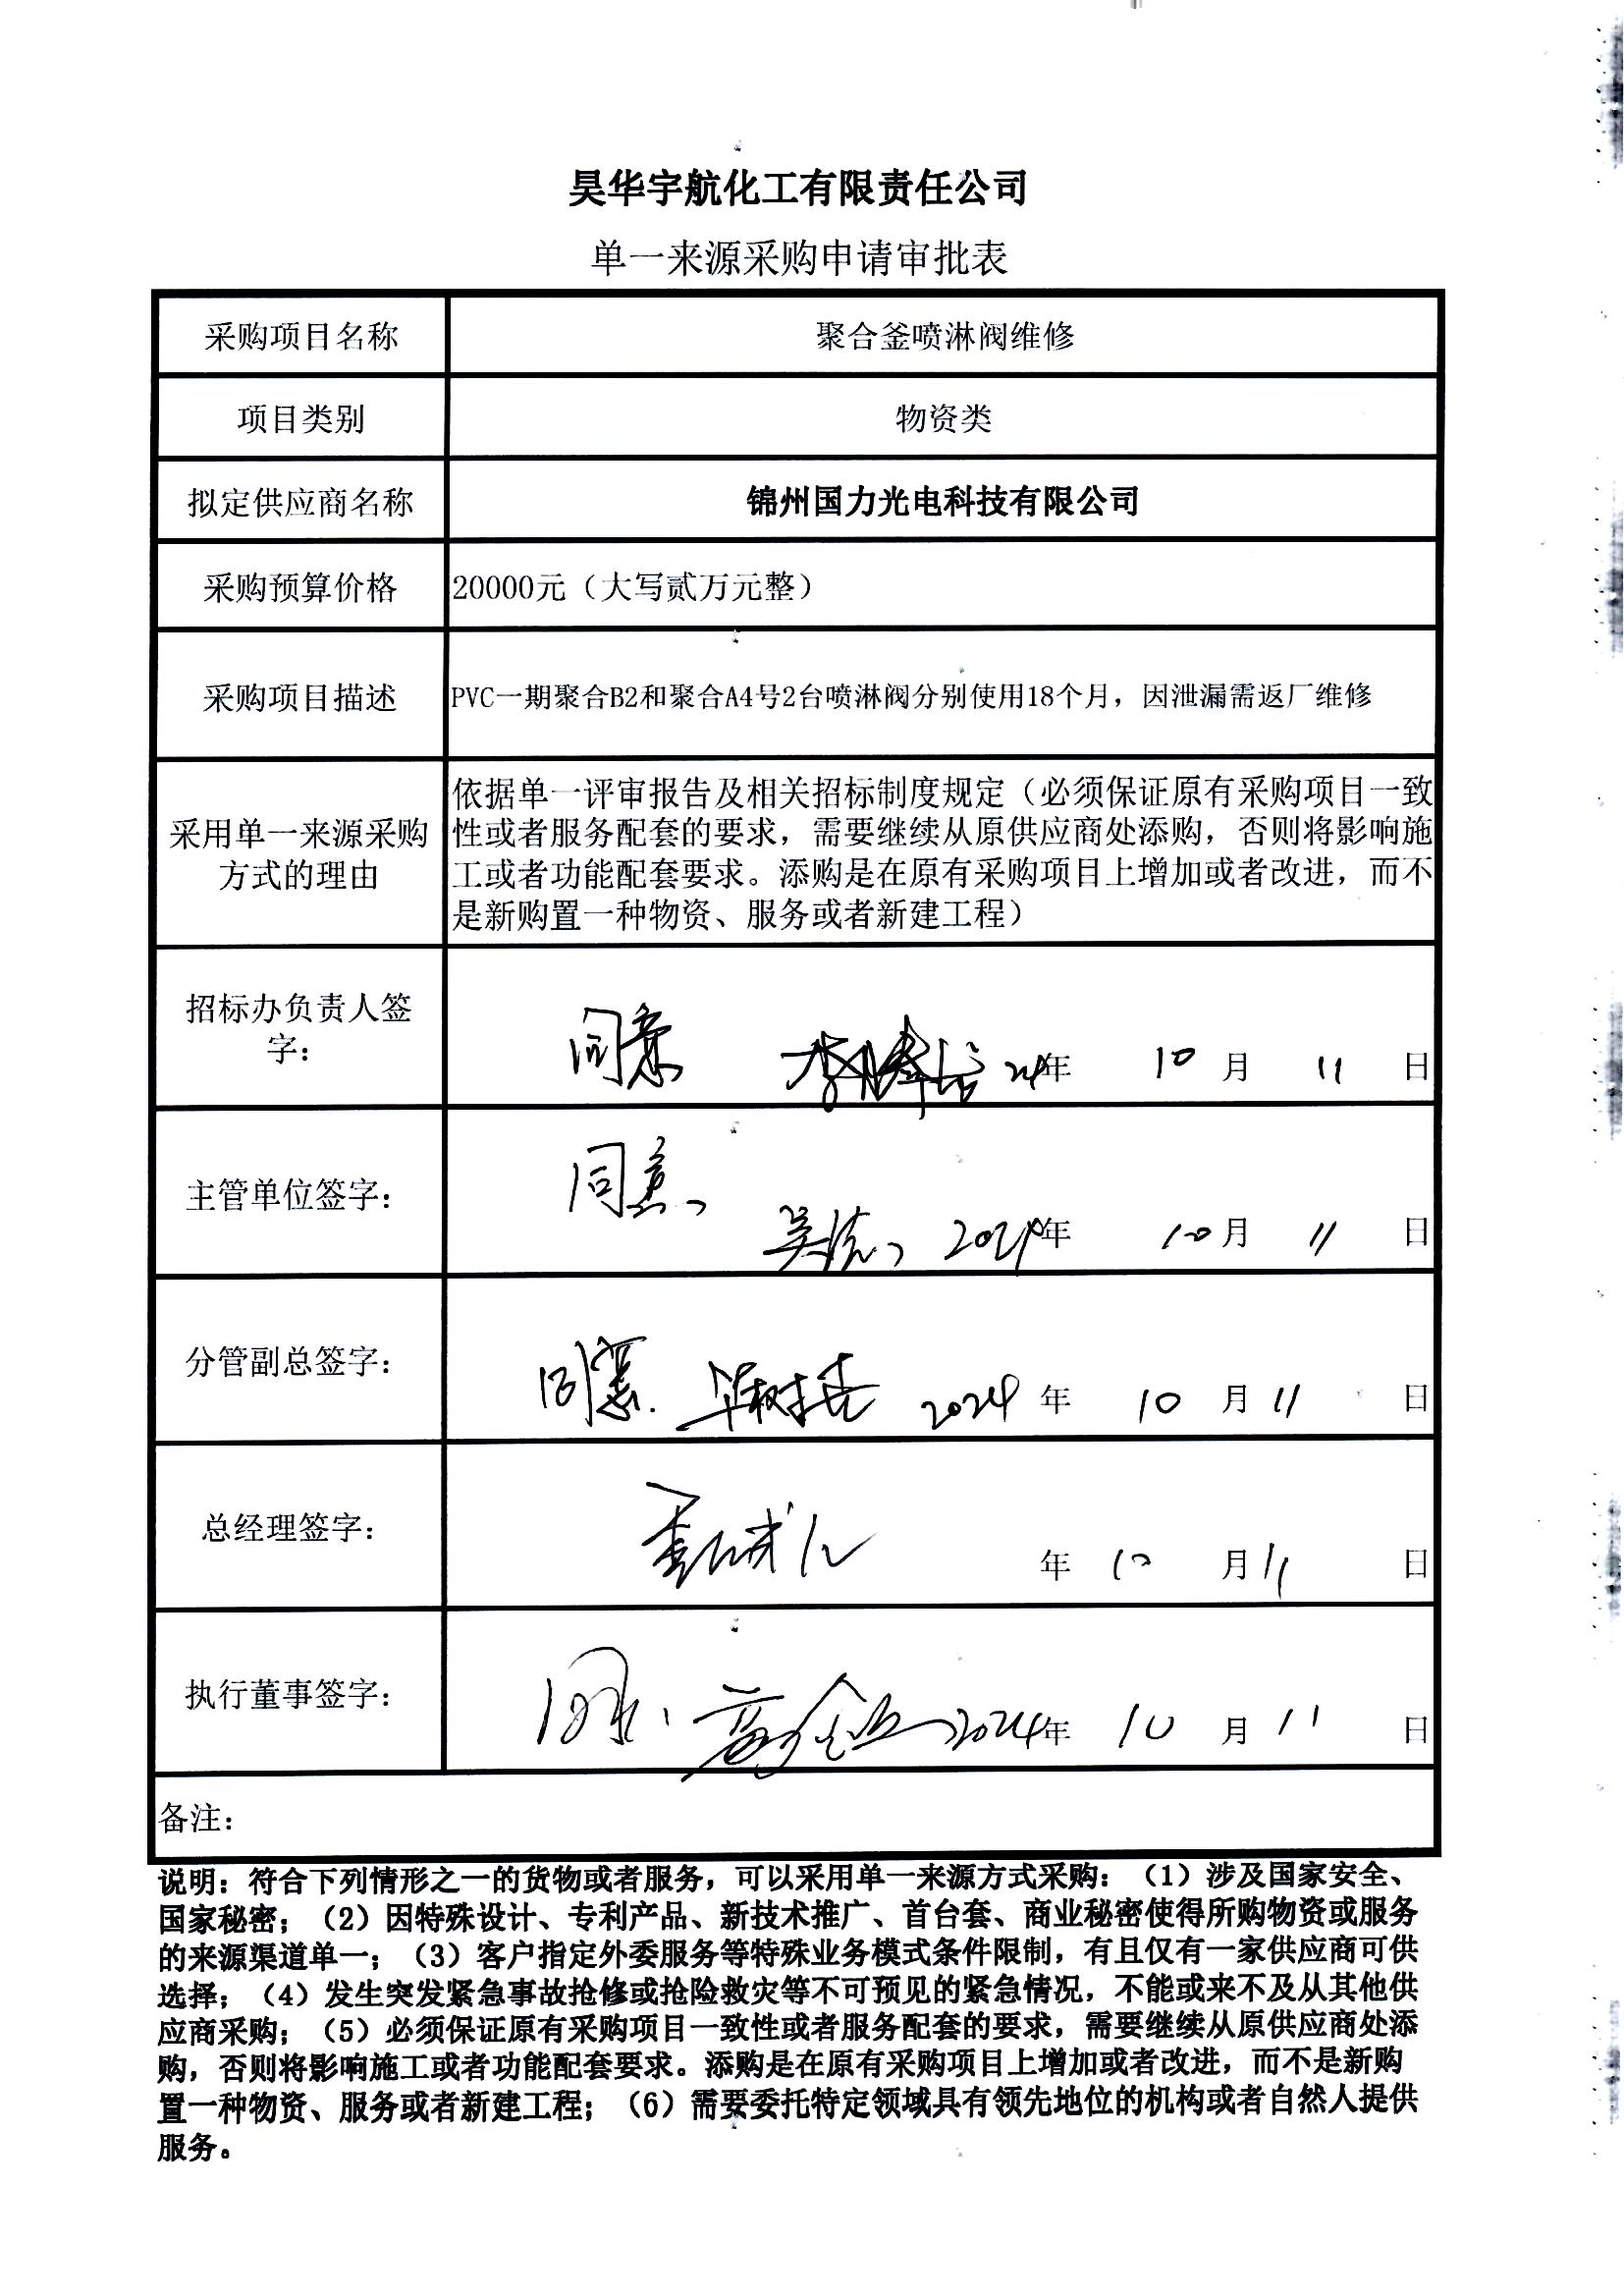 昊华宇航化工有限责任公司
单一来源采购申请审批表
采购项目名称
聚合釜喷淋阀维修
项目类别
物资类
拟定供应商名称
锦州国力光电科技有限公司
采购预算价格
20000元（大写贰万元整）
采购项目描述
PVC一期聚合B2和聚合A4号2台喷淋阀分别使用18个月，因泄漏需返厂维修
采用单一来源采购
方式的理由
依据单一评审报告及相关招标制度规定（必须保证原有采购项目一致
性或者服务配套的要求，需要继续从原供应商处添购，否则将影响施
工或者功能配套要求。添购是在原有采购项目上增加或者改进，而不
是新购置一种物资、服务或者新建工程）
招标办负责人签
字：
同意 24年 10月 11日
主管单位签字：
同意
2024年 10月 11日
分管副总签字：
同意 2024年 10月 11日
总经理签字：
年 10月 11日
执行董事签字：
同意 2024年 10月 11日
备注：
说明：符合下列情形之一的货物或者服务，可以采用单一来源方式采购：（1）涉及国家安全、
国家秘密；（2）因特殊设计、专利产品、新技术推广、首台套、商业秘密使得所购物资或服务
的来源渠道单一；（3）客户指定外委服务等特殊业务模式条件限制，有且仅有一家供应商可供
选择；（4）发生突发紧急事故抢修或抢险救灾等不可预见的紧急情况，不能或来不及从其他供
应商采购；（5）必须保证原有采购项目一致性或者服务配套的要求，需要继续从原供应商处添
购，否则将影响施工或者功能配套要求。添购是在原有采购项目上增加或者改进，而不是新购
置一种物资、服务或者新建工程；（6）需要委托特定领域具有领先地位的机构或者自然人提供
服务。